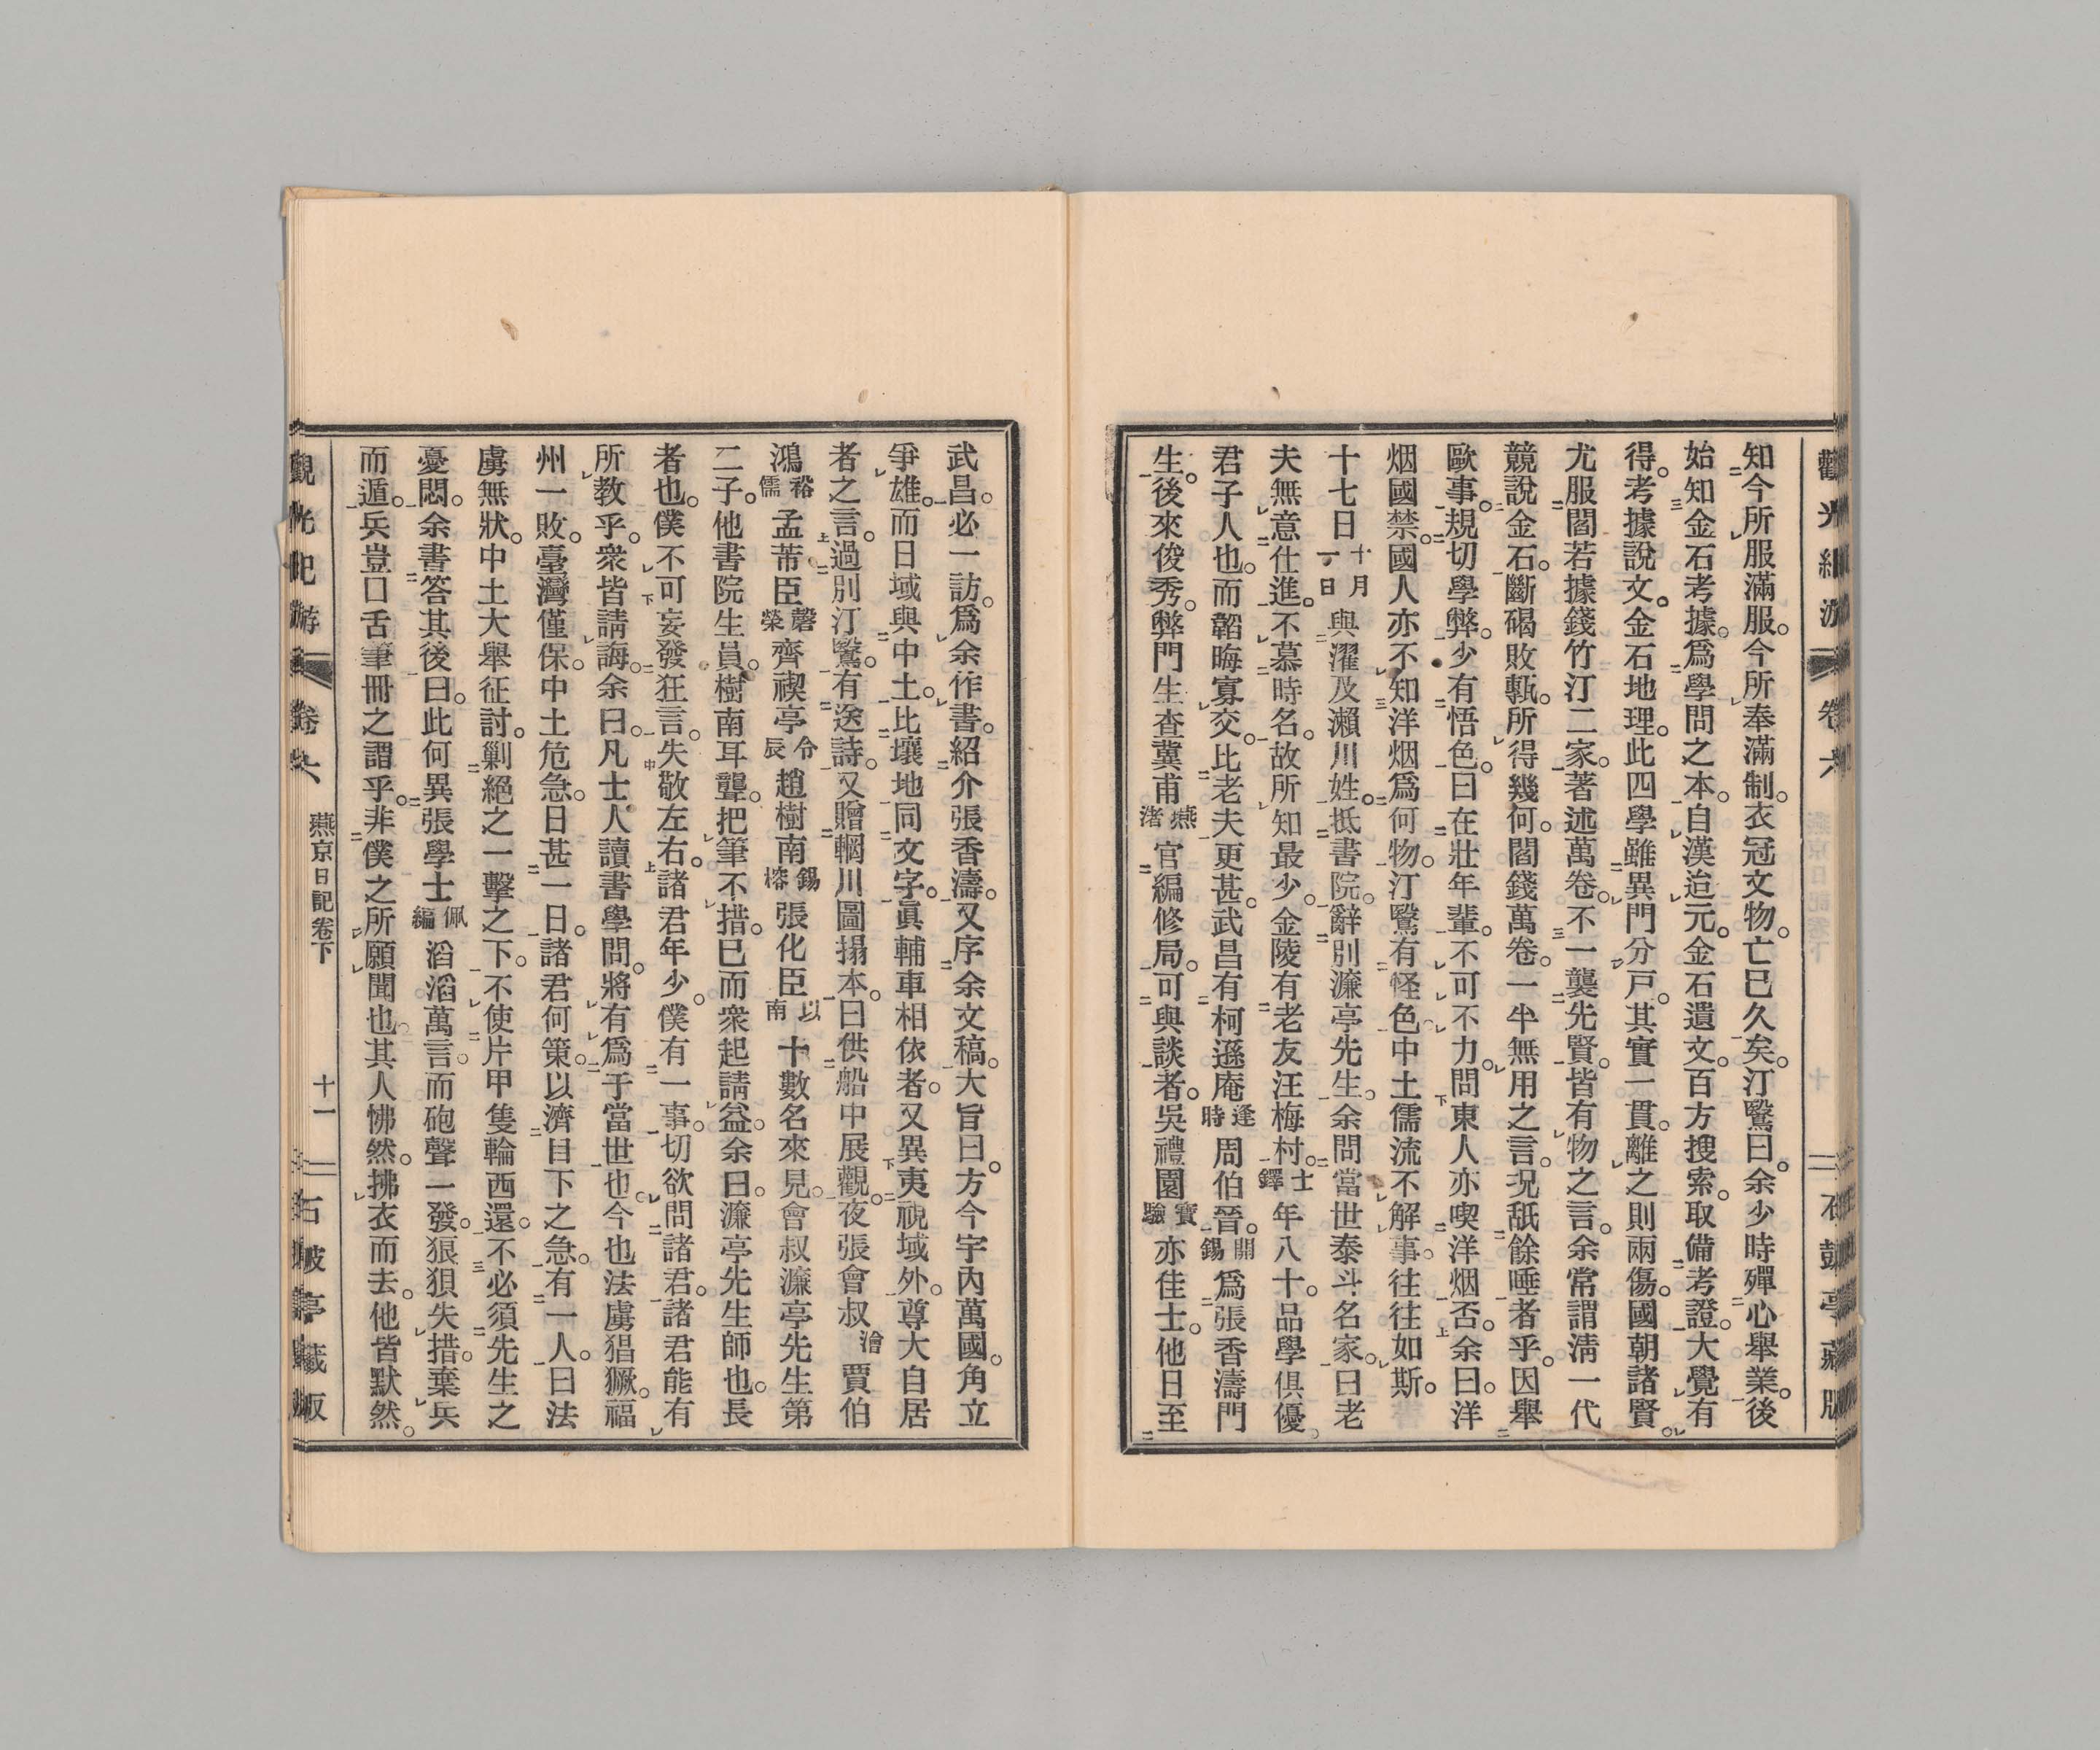 知今所服滿服。今所奉滿制。衣冠文物。亡已久矣。汀鷖曰。余少時殫心舉業。後
始知金石考據。爲學問之本。自漢迨元。金石遺文。百方搜索。取備考證。大覺有
得。考據說文。金石地理。此四學雖異門分戸。其實一貫。離之則兩傷。國朝諸賢。
尤服閻若據錢竹汀二家。著述萬卷。不一襲先賢。皆有物之言。余常謂淸一代
競說金石。斷碣敗甎。所得幾何。閻錢萬卷。一半無用之言。況舐餘唾者乎。因舉
歐事。規切學弊。少有悟色。曰在壯年輩。不可不力。問東人亦喫洋烟否。余曰。洋
烟國禁。國人亦不知洋烟爲何物。汀鷖有怪色。中土儒流不解事。往往如斯。
十七日十月一日與濯及瀨川姓。抵書院。辭別濂亭先生。余問當世泰斗名家。曰老
夫無意仕進。不慕時名。故所知最少。金陵有老友汪梅村。士鐸年八十。品學俱優。
君子人也。而韜晦寡交。比老夫更甚。武昌有柯遜庵逢時周伯晉。開錫爲張香濤門
生。後來俊秀。弊門生查冀甫燕渚官編修局。可與談者。吳禮園寶驗亦佳士。他日至
武昌。必一訪。爲余作書。紹介張香濤。又序余文稿。大旨曰。方今宇內萬國。角立
爭雄。而日域與中土。比壤地同文字。眞輔車相依者。又異夷視域外。尊大自居
者之言。過別汀鷖。有送詩。又贈輞川圖搨本。曰供船中展觀。夜張會叔澮賈伯
鴻裕儒孟芾臣罄榮齊禊亭令辰趙樹南錫榕張化臣以南十數名來見。會叔濂亭先生第
二子。他書院生員。樹南耳聾。把筆不措。已而衆起請益。余曰。濂亭先生師也。長
者也。僕不可妄發狂言。失敬左右。諸君年少。僕有一事。切欲問諸君。諸君能有
所教乎。衆皆請誨。余曰。凡士人讀書學問。將有爲于當世也。今也法虜猖獗。福
州一敗。臺灣僅保。中土危急。日甚一日。諸君何策。以濟目下之急。有一人。曰法
虜無狀。中土大舉征討。剿絕之一擊之下。不使片甲隻輪西還。不必須先生之
憂悶。余書答其後曰。此何異張學士佩編滔滔萬言。而砲聲一發。狠狽失措。棄兵
而遁。兵豈口舌筆冊之謂乎。非僕之所願聞也。其人怫然。拂衣而去。他皆默然。
燕京日記卷下
十一